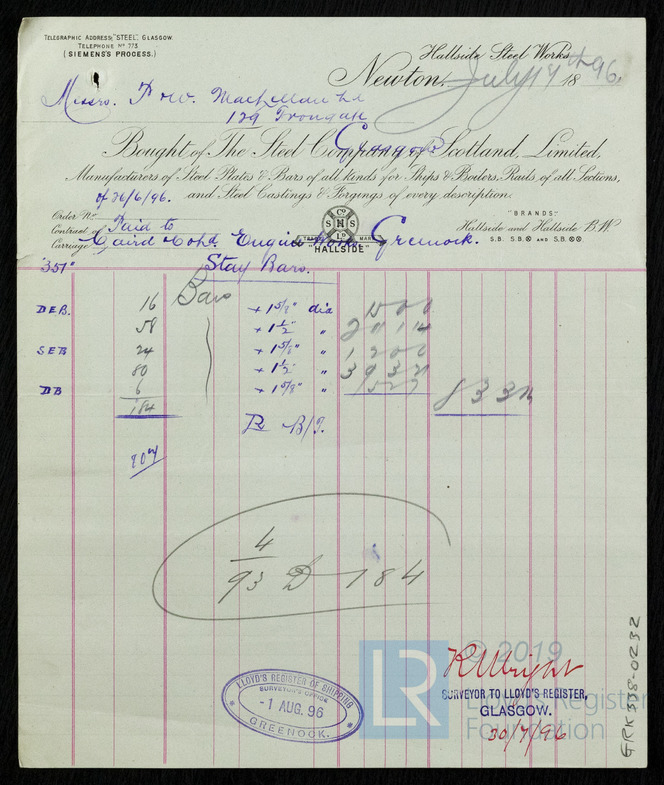 TELEGRAPHIC ADDRESS, "STEEL", GLASGOW.
TELEPHONE Nº 773
(SIEMENS'S PROCESS.)
Hallside Steel Works
Newton, July 17th 1896.
Messrs. P & W. MacLellan Ld
129 Trongate
Glasgow
Bought of The Steel Company of Scotland, Limited,
Manufacturers of Steel Plates & Bars of all kinds for Ships & Boilers, Rails of all Sections,
of 26/6/96. and Steel Castings & Forgings of every description.
Order No.
Contract of
Carriage Paid to
Caird & Cohd. Engine Works Greenock.
"BRANDS"
Hallside and Hallside B.W.
S.B. S.B. AND S.B.
Co S H S Ld
TRADE MARK
"HALLSIDE"
"351" Stay Bars.
DEB. 16 Bars + 1 5/8" dia 1500
58 + 1 1/2" "
SEB 24 + 1 5/8" " 1200
80 + 1 1/2" "
DB 6 + 1 5/8" "
184
B/I.
4
93 D 184
LLOYD'S REGISTER OF SHIPPING
SURVEYOR'S OFFICE
-1 AUG. 96
GREENOCK.
R Wright
SURVEYOR TO LLOYD'S REGISTER,
GLASGOW.
30/7/96
LR
© 2019
Lloyd's Register
Foundation
GRK 378-0232